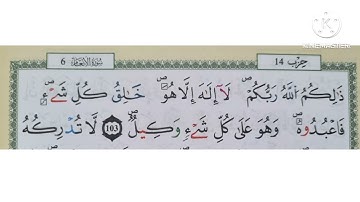 سُورَةُ الْأَنْعَامِ 6
حِزْب 14
ذَٰلِكُمُ اللَّهُ رَبُّكُمْ ۖ لَآ إِلَٰهَ إِلَّا هُوَ ۖ خَٰلِقُ كُلِّ شَيْءٍ
فَاعْبُدُوهُ ۖ وَهُوَ عَلَىٰ كُلِّ شَيْءٍ وَكِيلٌ 103 لَّا تُدْرِكُهُ
KINEMASTER